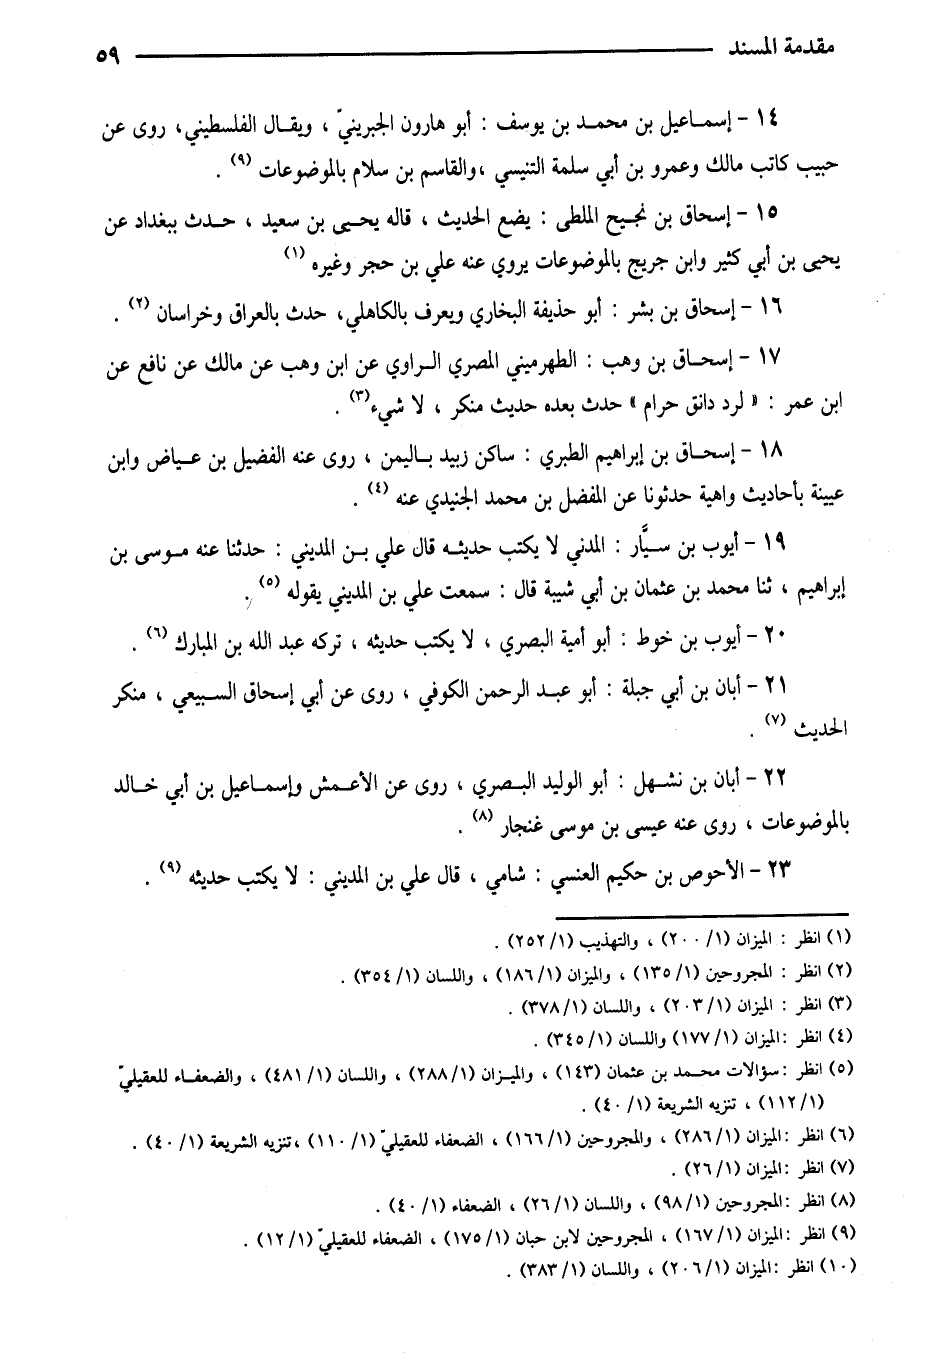 مقدمة المسند ٥٩
١٤ - إسماعيل بن محمد بن يوسف : أبو هارون الجبرينيّ ، ويقال الفلسطيني، روى عن
حبيب كاتب مالك وعمرو بن أبي سلمة التنيسي ،والقاسم بن سلام بالموضوعات (٩) .
١٥ - إسحاق بن نجيح الملطى : يضع الحديث ، قاله يحيى بن سعيد ، حدث ببغداد عن
يحيى بن أبي كثير وابن جريج بالموضوعات يروي عنه علي بن حجر وغيره (١)
١٦ - إسحاق بن بشر : أبو حذيفة البخاري ويعرف بالكاهلي، حدث بالعراق وخراسان (٢) .
١٧ - إسحاق بن وهب : الطهرميني المصري الراوي عن ابن وهب عن مالك عن نافع عن
ابن عمر : « لرد دانق حرام » حدث بعده حديث منكر ، لا شيء(٣) .
١٨ - إسحاق بن إبراهيم الطبري : ساكن زبيد باليمن ، روى عنه الفضيل بن عياض وابن
عيينة بأحاديث واهية حدثونا عن المفضل بن محمد الجنيدي عنه (٤) .
١٩ - أيوب بن سيَّار : المدني لا يكتب حديثه قال علي بن المديني : حدثنا عنه موسى بن
إبراهيم ، ثنا محمد بن عثمان بن أبي شيبة قال : سمعت علي بن المديني يقوله (٥) .
٢٠ - أيوب بن خوط : أبو أمية البصري ، لا يكتب حديثه ، تركه عبد الله بن المبارك (٦) .
٢١ - أبان بن أبي جبلة : أبو عبد الرحمن الكوفي ، روى عن أبي إسحاق السبيعي ، منكر
الحديث (٧) .
٢٢ - أبان بن نشهل : أبو الوليد البصري ، روى عن الأعمش وإسماعيل بن أبي خالد
بالموضوعات ، روى عنه عيسى بن موسى غنجار (٨) .
٢٣ - الأحوص بن حكيم العنسي : شامي ، قال علي بن المديني : لا يكتب حديثه (٩) .
(١) انظر : الميزان (١/ ٢٠٠) ، والتهذيب (١/ ٢٥٢) .
(٢) انظر : المجروحين (١/ ١٣٥) ، والميزان (١/ ١٨٦) ، واللسان (١/ ٣٥٤) .
(٣) انظر : الميزان (١/ ٢٠٣) ، واللسان (١/ ٣٧٨) .
(٤) انظر :الميزان (١/ ١٧٧) واللسان (١/ ٣٤٥) .
(٥) انظر :سؤالات محمد بن عثمان (١٤٣) ، والميزان (١/ ٢٨٨) ، واللسان (١/ ٤٨١) ، والضعفاء للعقيليّ
(١/ ١١٢) ، تنزيه الشريعة (١/ ٤٠) .
(٦) انظر :الميزان (١/ ٢٨٦) ، والمجروحين (١/ ١٦٦) ، الضعفاء للعقيليّ (١/ ١١٠) ،تنزيه الشريعة (١/ ٤٠) .
(٧) انظر :الميزان (١/ ٢٦) .
(٨) انظر :المجروحين (١/ ٩٨) ، واللسان (١/ ٢٦) ، الضعفاء (١/ ٤٠) .
(٩) انظر :الميزان (١/ ١٦٧) ، المجروحين لابن حبان (١/ ١٧٥) ، الضعفاء للعقيليّ (١/ ١٢) .
(١٠) انظر :الميزان (١/ ٢٠٦) ، واللسان (١/ ٣٨٣) .